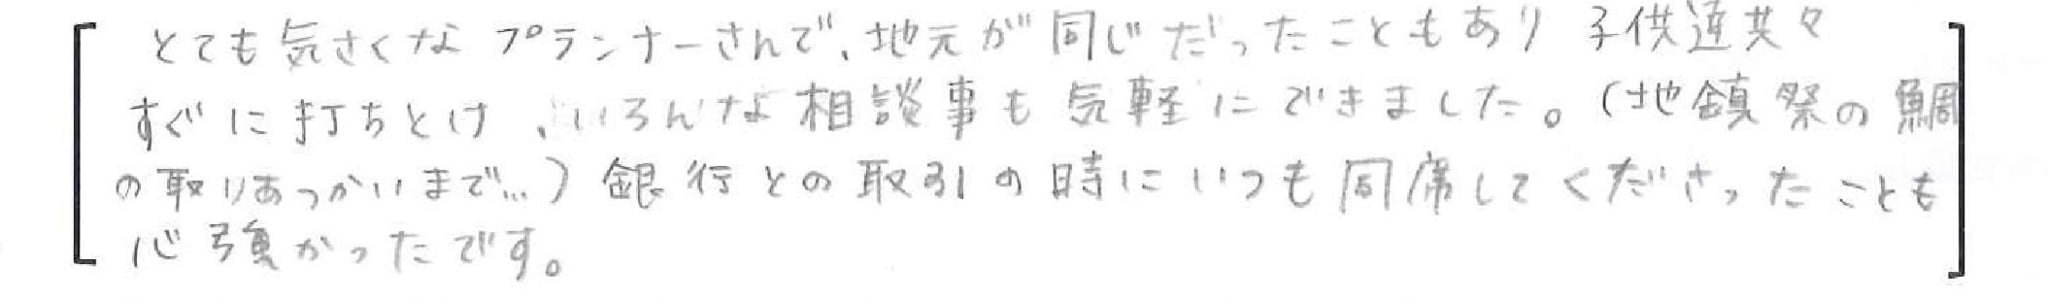 とても気さくなプランナーさんで、地元が同じだったこともあり 子供達共々
すぐに打ちとけ、いろんな相談事も気軽にできました。(地鎮祭の鯛
の取りあつかいまで…)銀行との取引の時にいつも同席してくださったことも
心強かったです。